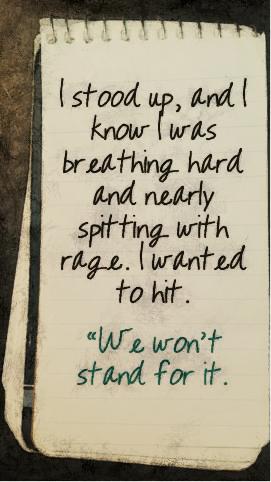 I stood up, and I
know I was
breathing hard
and nearly
spitting with
rage. I wanted
to hit.
"We won't
stand for it.